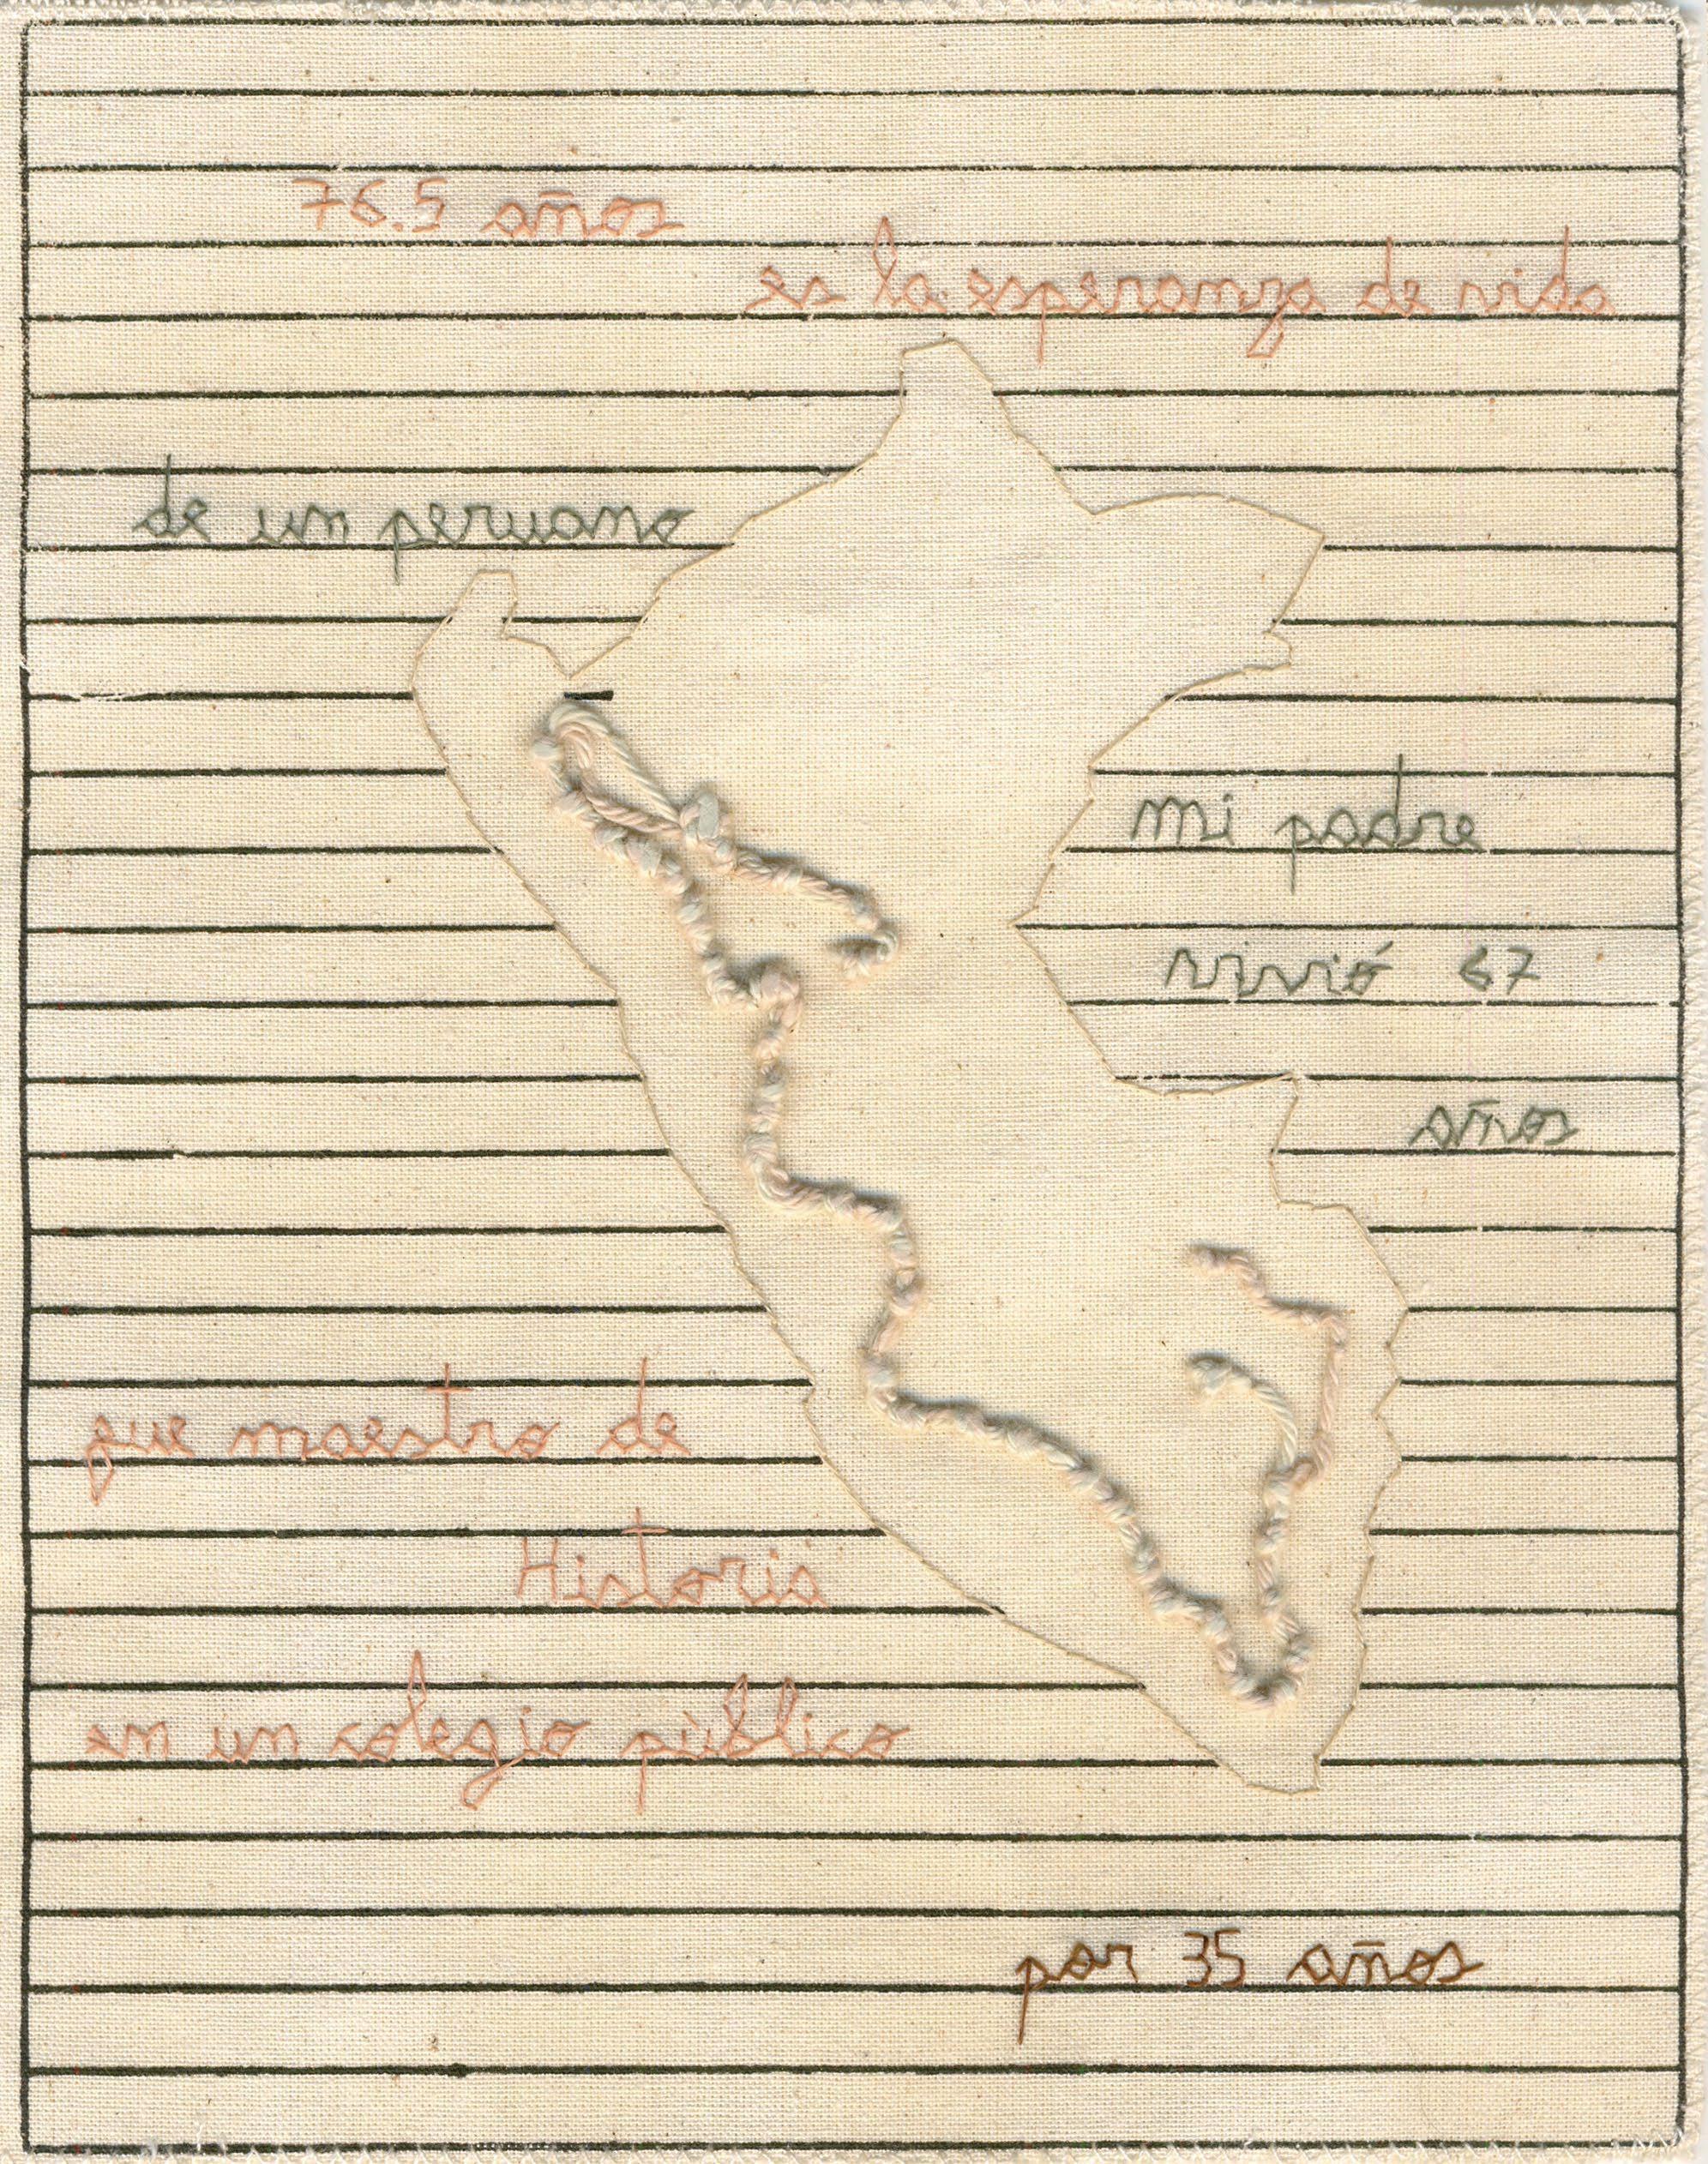 76.5 años
es la esperanza de vida
de un peruano
mi padre
vivió 67
años
que maestro de
Historia
en un colegio pùblico
por 35 años